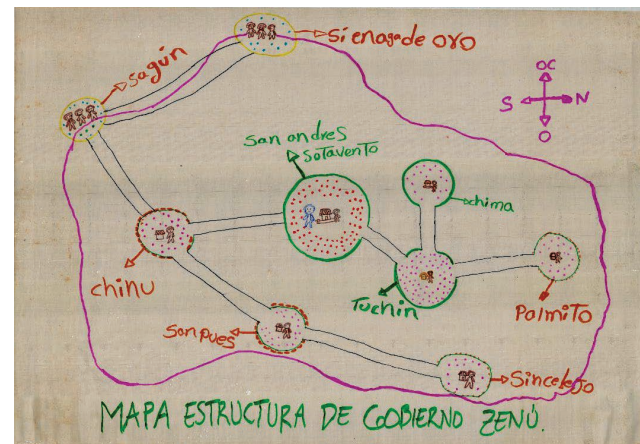 Sienaga de oro
Sagún
OC
S N
O
San andres
Sotavento
chima
chinu
Tuchin
Palmito
Sanpues
Sincelejo
MAPA ESTRUCTURA DE GOBIERNO ZENÚ.